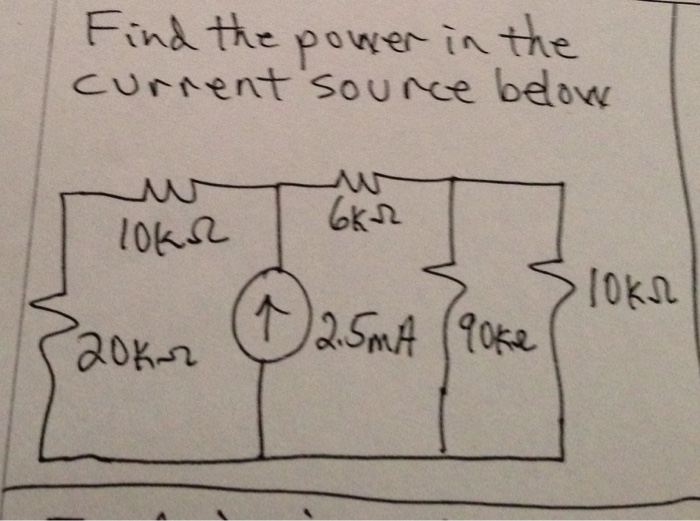 Find the power in the
current source below
10KΩ
6KΩ
20KΩ
↑
2.5mA
90KΩ
10KΩ